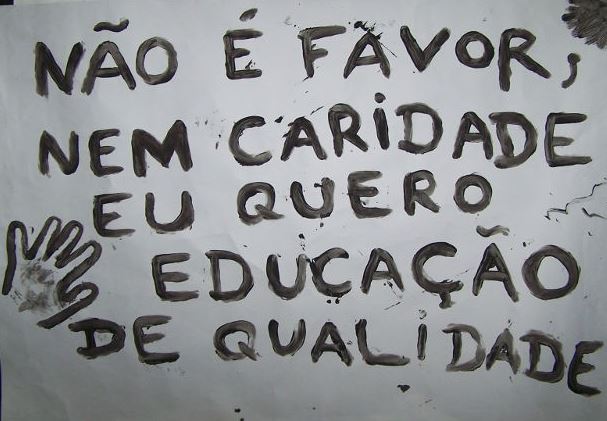 NÃO É FAVOR,
NEM CARiDADE
EU QUERO
EDUCAÇÃO
DE QUALiDADE